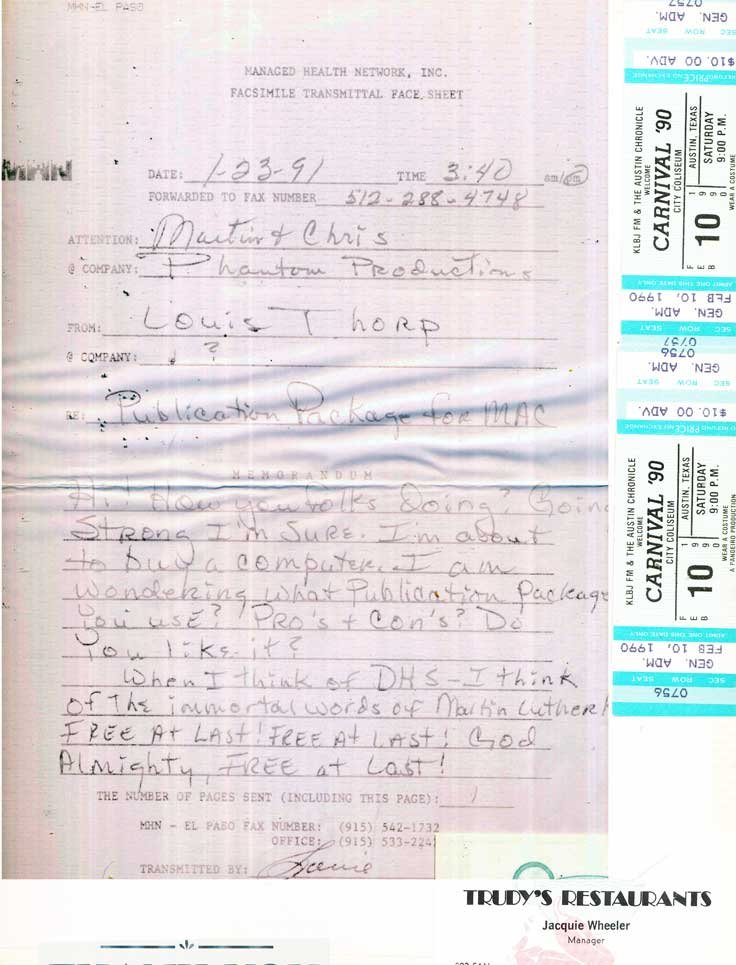 MHN-EL PASO
MANAGED HEALTH NETWORK, INC.
FACSIMILE TRANSMITTAL FACE SHEET
MHN
DATE: 1-23-91 TIME 3:40 am/pm
FORWARDED TO FAX NUMBER 512-288-4748
ATTENTION: Martin & Chris
@ COMPANY: Phantom Productions
FROM: Louis Thorp
@ COMPANY: ?
RE: Publication Package for MAC
MEMORANDUM
Hi! How you folks Doing? Going
Strong I'm Sure. I'm about
to buy a computer. I am
wondering what Publication Package
You use? Pro's + Con's? Do
You like it?
When I think of DHS - I think
of the immortal words of Martin Luther
FREE At LAST! FREE At LAST! God
Almighty, FREE at Last!
THE NUMBER OF PAGES SENT (INCLUDING THIS PAGE): 1
MHN - EL PASO FAX NUMBER: (915) 542-1732
OFFICE: (915) 533-224
TRANSMITTED BY:
0757
SEC ROW SEAT
GEN. ADM.
$10.00 ADV.
KLBJ FM & THE AUSTIN CHRONICLE
WELCOME
CARNIVAL '90
CITY COLISEUM
AUSTIN, TEXAS
FEB 10 1990
SATURDAY
9:00 P.M.
WEAR A COSTUME
ADMIT ONE THIS DATE ONLY
FEB 10, 1990
GEN. ADM.
SEC ROW SEAT
0757
0756
SEC ROW SEAT
GEN. ADM.
$10.00 ADV.
KLBJ FM & THE AUSTIN CHRONICLE
WELCOME
CARNIVAL '90
CITY COLISEUM
AUSTIN, TEXAS
FEB 10 1990
SATURDAY
9:00 P.M.
WEAR A COSTUME
A PANDEIRO PRODUCTION
ADMIT ONE THIS DATE ONLY
FEB 10, 1990
GEN. ADM.
SEC ROW SEAT
0756
TRUDY'S RESTAURANTS
Jacquie Wheeler
Manager